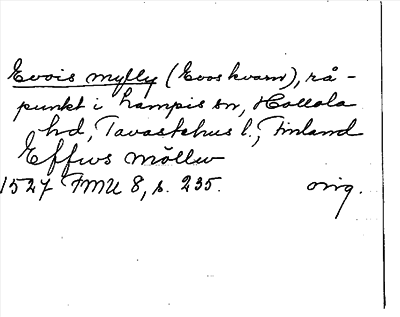 Evois mylly (Evos kvarn), rå-
punkt i Lampis sn, Hollola
hd, Tavastehus l., Finland
Effwos möllw
1527 FMU 8, s. 235. orig.